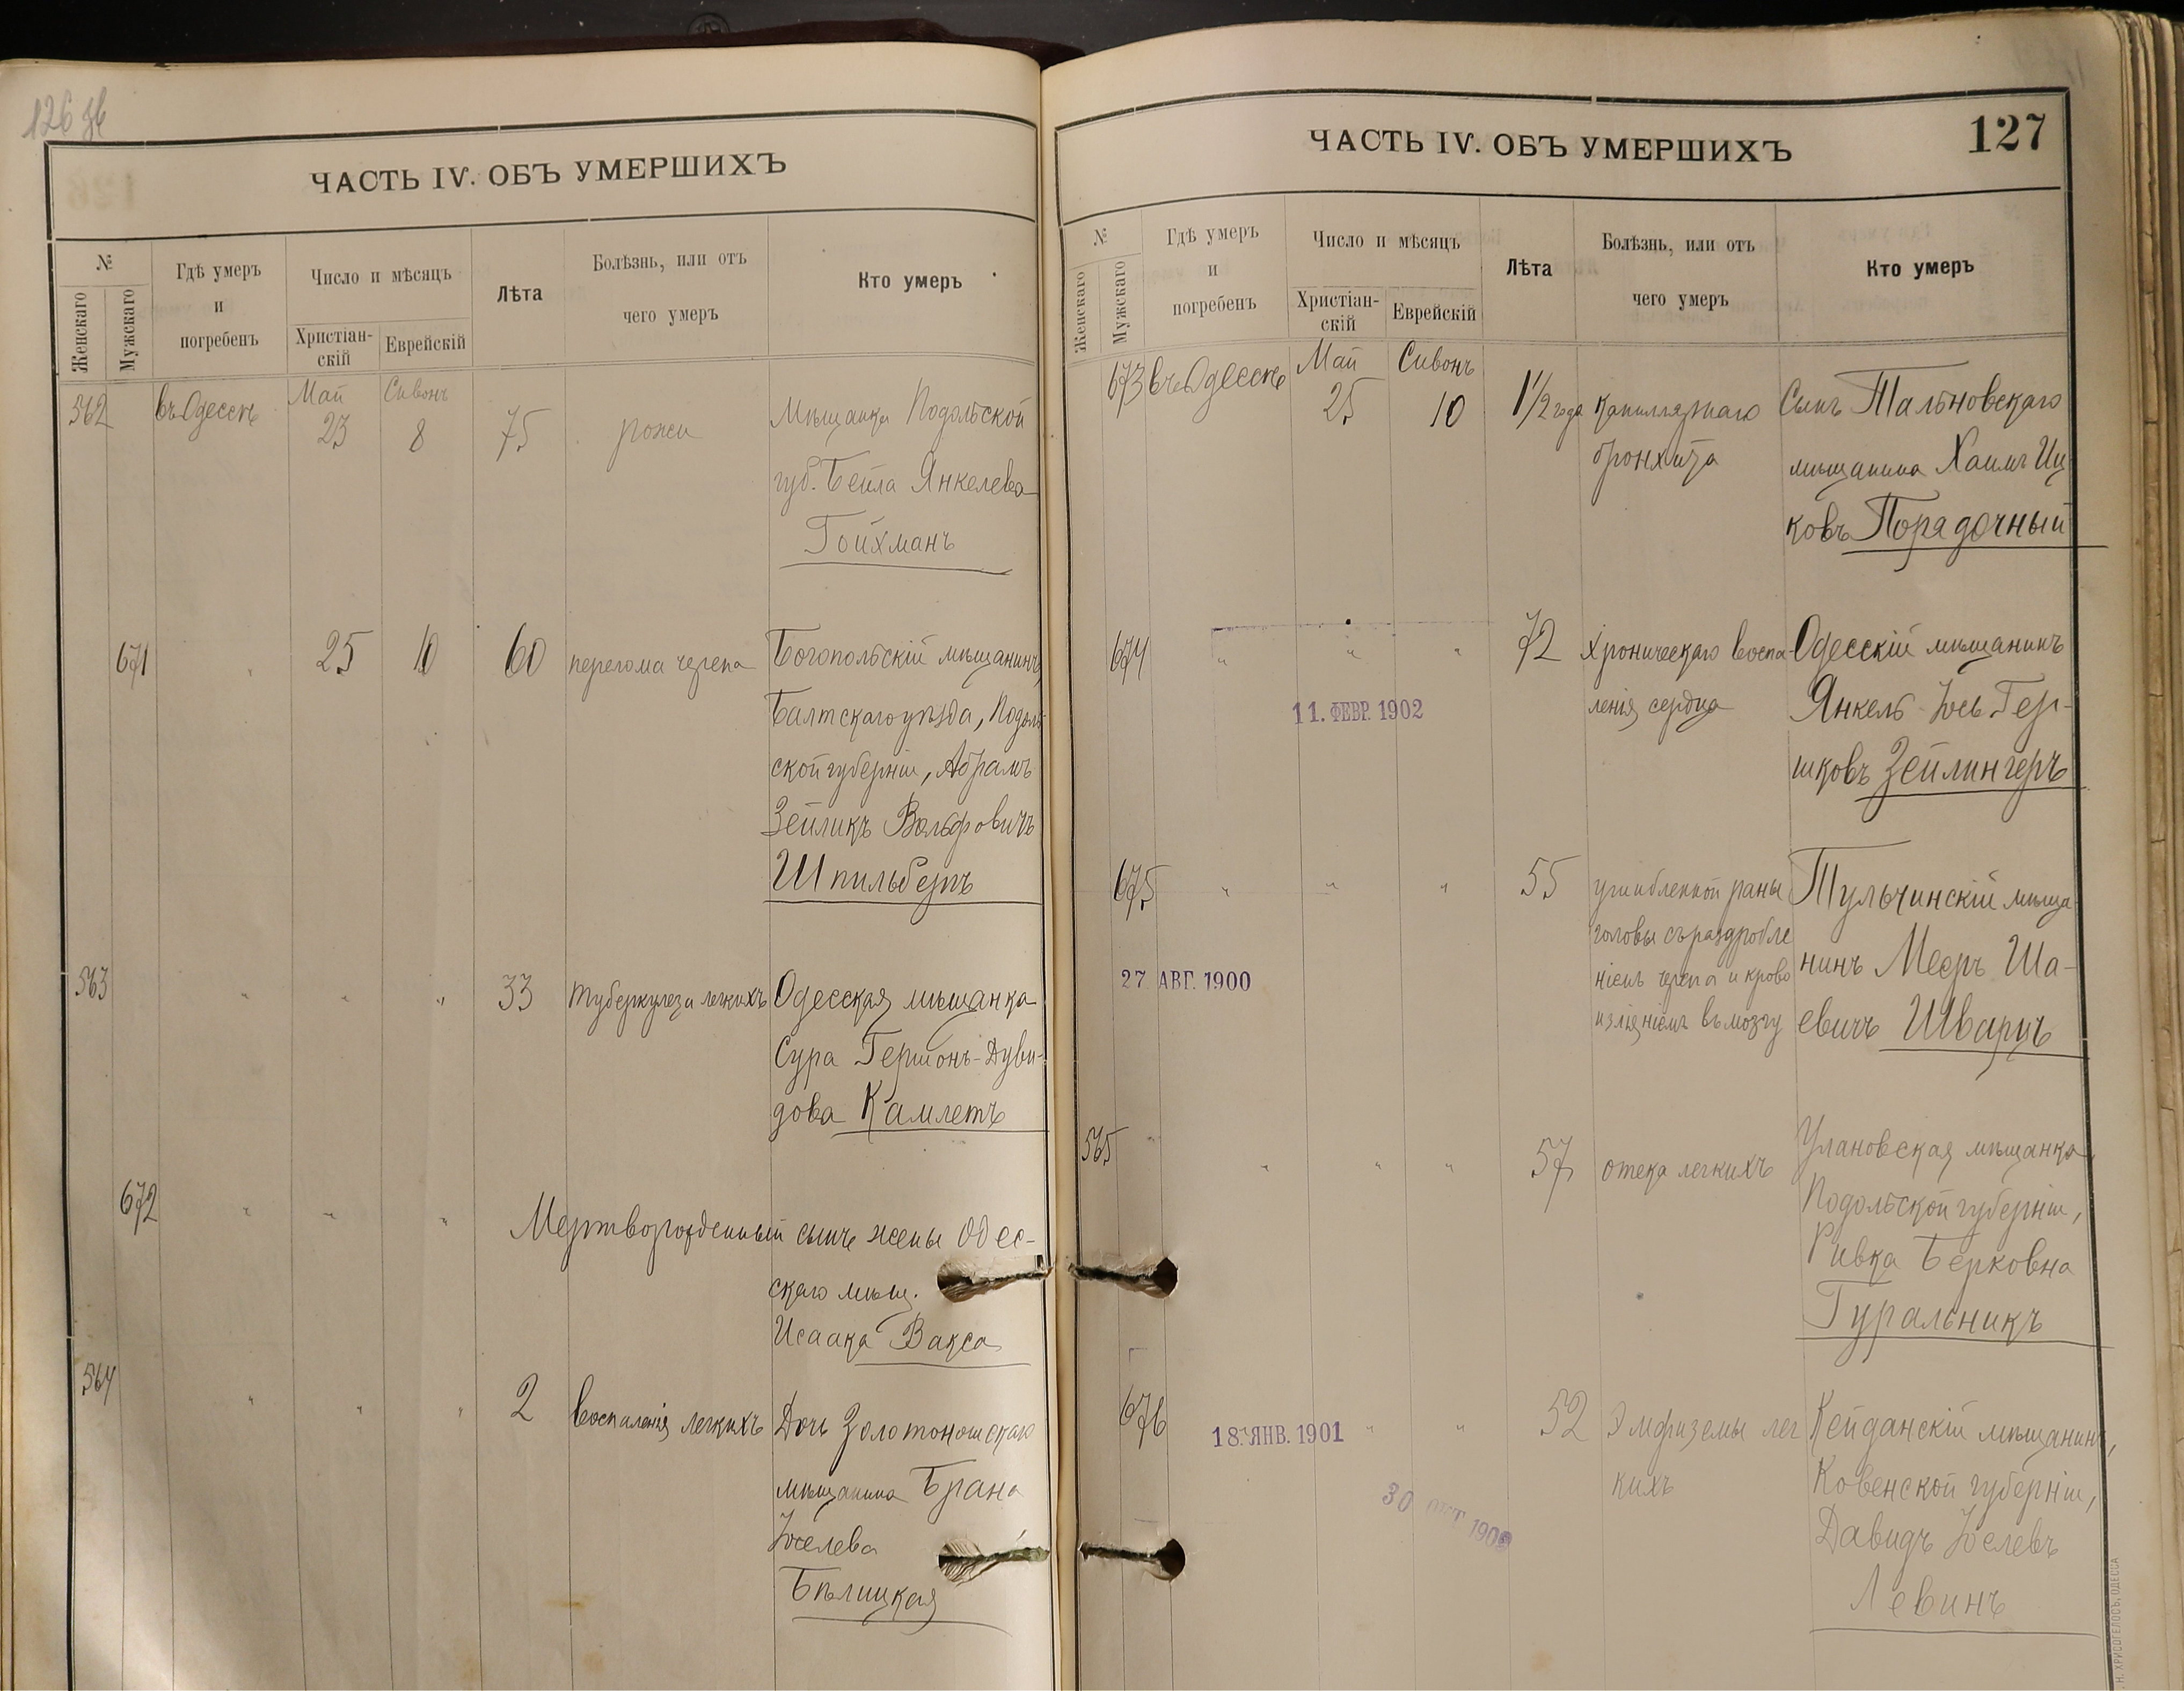 126 об
ЧАСТЬ IV. ОБЪ УМЕРШИХЪ
№
Женскаго
Мужскаго
Гдѣ умеръ
и
погребенъ
Число и мѣсяцъ
Христіан-
скій
Еврейскій
Лѣта
Болѣзнь, или отъ
чего умеръ
Кто умеръ
562 въ Одессѣ Май 23 Сивонъ 8 75 рожи Мѣщанка Подольской
губ. Бейла Янкелева
Гойхманъ
671 " 25 10 60 перелома черепа Богопольскій мѣщанинъ,
Балтскаго уѣзда, Подоль
ской губерніи, Абрамъ
Зейликъ Вольфовичъ
Шпильбергъ
563 " " " 33 туберкулеза легкихъ Одесская мѣщанка
Сура Гершонъ-Дуви-
дова Камлетъ
672 " " " Мертворожденный сынъ жены Одес-
скаго мѣщ.
Исаака Вакса
564 " " " 2 воспаленія легкихъ Дочь Золотоношскаго
мѣщанина Брана
Іоселева
Бѣлицкая
127
ЧАСТЬ IV. ОБЪ УМЕРШИХЪ
№
Женскаго
Мужскаго
Гдѣ умеръ
и
погребенъ
Число и мѣсяцъ
Христіан-
скій
Еврейскій
Лѣта
Болѣзнь, или отъ
чего умеръ
Кто умеръ
673 въ Одессѣ Май 25 Сивонъ 10 1½ года капиллярнаго Сынъ Тальновскаго
бронхита мѣщанина Хаимъ Иц
ковъ Порядочный
674 " " " 72 хроническаго воспа- Одесскій мѣщанинъ
11. ФЕВР. 1902 ленія сердца Янкель-Іось Гер-
шковъ Зейлингеръ
675 " " " 55 ушибленной раны Тульчинскій мѣща
головы съ раздробле нинъ Мееръ Ша-
27 АВГ. 1900 ніемъ черепа и крово
изліяніемъ въ мозгу евичъ Шварцъ
565 " " " 57 отека легкихъ Улановская мѣщанка,
Подольской губерніи,
Ривка Берковна
Гуральникъ
676 18. ЯНВ. 1901 " " 52 Эмфиземы лег Кейданскій мѣщанинъ,
30 ОКТ 190 кихъ Ковенской губерніи,
Давидъ Іоселевъ
Левинъ
Н. ХРИСОГЕЛОСЪ, ОДЕССА